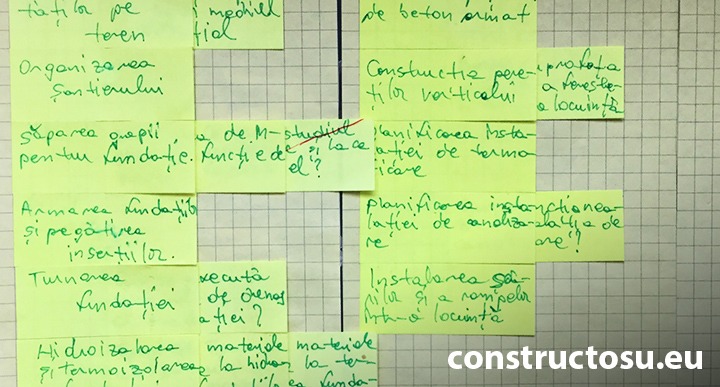 taților pe
teren
mediul
țial
Organizarea
șantierului
săparea gropii
pentru fundație.
a de M-
funcție de
studiul
și la ce
el?
Armarea fundației
și pregătirea
inserțiilor.
Turnarea
fundației
xecută
de drenaj
ației?
Hidroizolarea
și termoizolarea
materiale
la hidroi
materiale
la ter-
de beton armat
Construcția pere-
ților verticali
prafața
a ferestre
a locuință
planificarea insta-
lației de termo
ficare
planificarea insta-
lației de canaliza-
re
nctionea-
lația de
are?
Instalarea scă-
rilor și a rampelor
într-o locuință
constructosu.eu